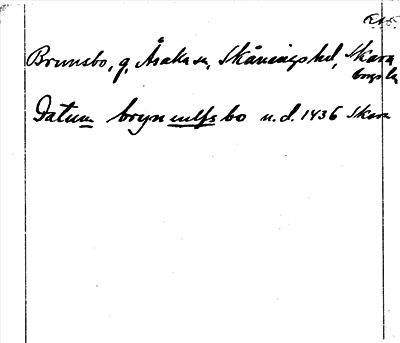 Brunsbo, g, Åsaka sn, Skånings hd, Skara
borgs län
Datum brynulfsbo u.d. 1436 Skara